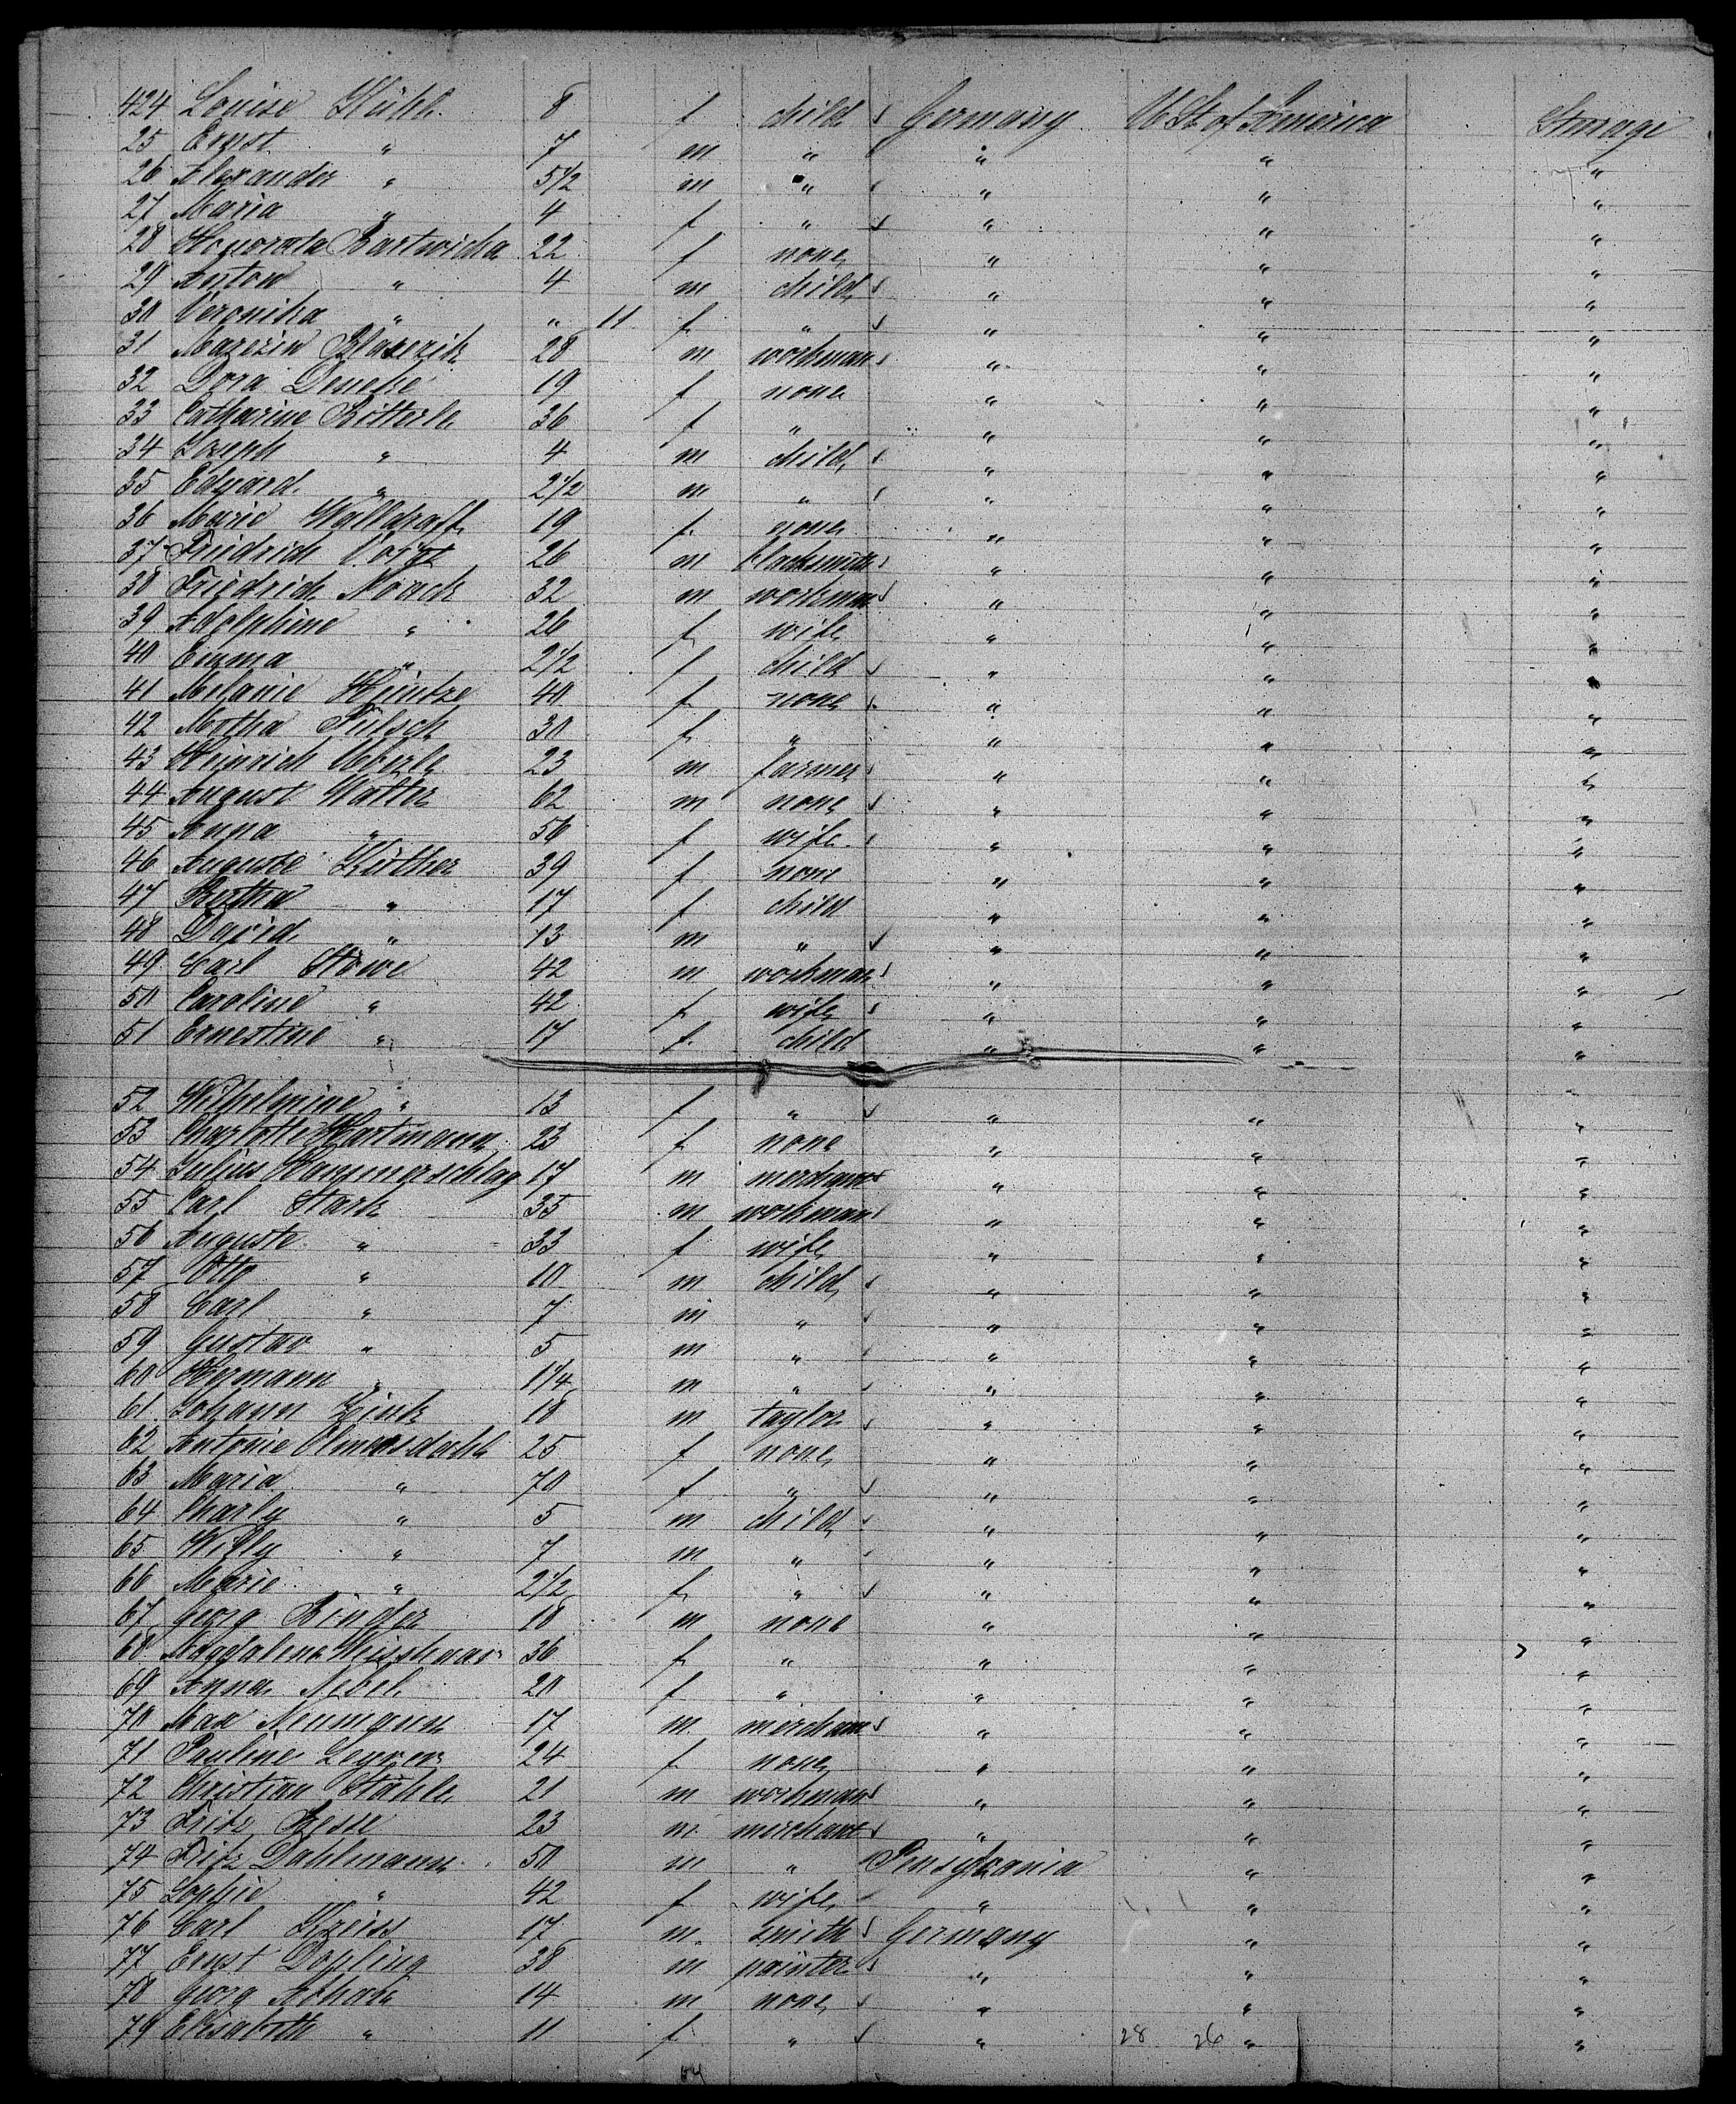 424 Louise Kühl 8 f child Germany U St of America Steerage
25 Ernst " 7 m " " " "
26 Alexander " 5 1/2 m " " " "
27 Maria " 4 f " " " "
28 Honorata Bartwicka 22 f none " " "
29 Anton " 4 m child " " "
30 Veronika " " 11 f " " " "
31 Marzin Blaserik 28 m workman " " "
32 Dora Deneke 19 f none " " "
33 Catharine Bitterle 36 f " " " "
34 Joseph " 4 m child " " "
35 Eduard " 2 1/2 m " " " "
36 Marie 19 f none " " "
37 Friedrich Voigt 26 m blacksmith " " "
38 Friedrich Noack 32 m workman " " "
39 Adolphine " 26 f wife " " "
40 Emma " 2 1/2 f child " " "
41 Melanie Heintze 40 f none " " "
42 Martha 30 f " " " "
43 Heinrich Eberle 23 m farmer " " "
44 August Walter 62 m none " " "
45 Anna " 56 f wife " " "
46 Auguste Küther 39 f none " " "
47 Bertha " 17 f child " " "
48 David " 13 m " " " "
49 Carl Stöwe 42 m workman " " "
50 Caroline " 42 f wife " " "
51 Ernestine " 17 f child " " "
52 Wilhelmine " 13 f " " " "
53 Charlotte Hartmann 23 f none " " "
54 Julius Hammerschlag 17 m merchant " " "
55 Carl Stark 35 m workman " " "
56 Auguste " 33 f wife " " "
57 Otto " 10 m child " " "
58 Carl " 7 m " " " "
59 Gustav " 5 m " " " "
60 Hermann " 1 1/4 m " " " "
61 Johann Zink 18 m taylor " " "
62 Antonie Olmersdahl 25 f none " " "
63 Maria " 70 f " " " "
64 Charly " 5 m child " " "
65 Willy " 7 m " " " "
66 Marie " 2 1/2 f " " " "
67 Georg Binder 18 m none " " "
68 Magdalena Weisshaar 36 f " " " "
69 Anna Nebel 20 f " " " "
70 Max Neumann 17 m merchant " " "
71 Pauline 24 f none " " "
72 Christian Stähle 21 m workman " " "
73 Fritz Hesse 23 m merchant " " "
74 Fritz Dahlmann 50 m " Pensylvania " "
75 Sophie " 42 f wife " " "
76 Carl Kreiss 17 m smith Germany " "
77 Ernst Dopling 38 m painter " " "
78 Georg 14 m none " " "
79 Elisabeth " 11 f " " 28 26 " "